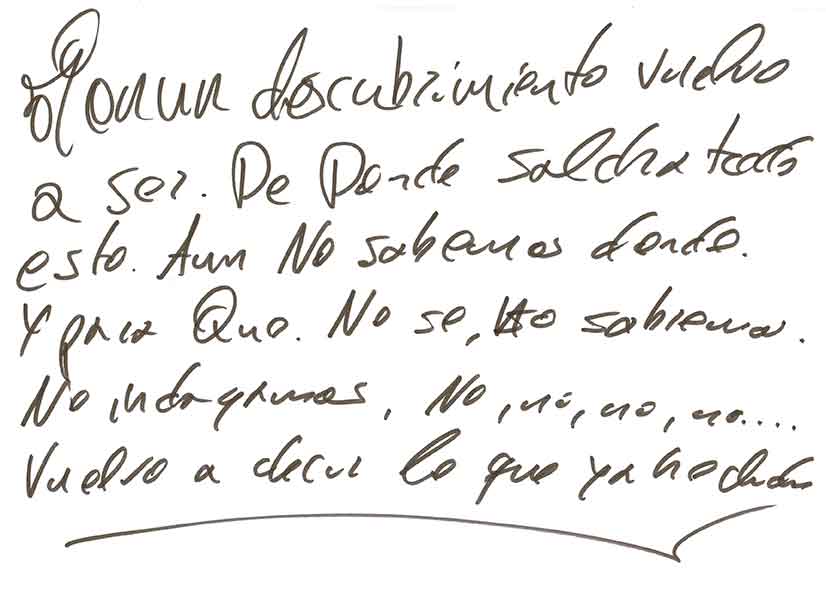 un descubrimiento vuelvo
a ser. De Donde saldra todo
esto. Aun No sabemos donde.
Y para Que. No se, No sabremos.
No indagamos, No, no, no, no....
Vuelvo a decir lo que ya he dicho